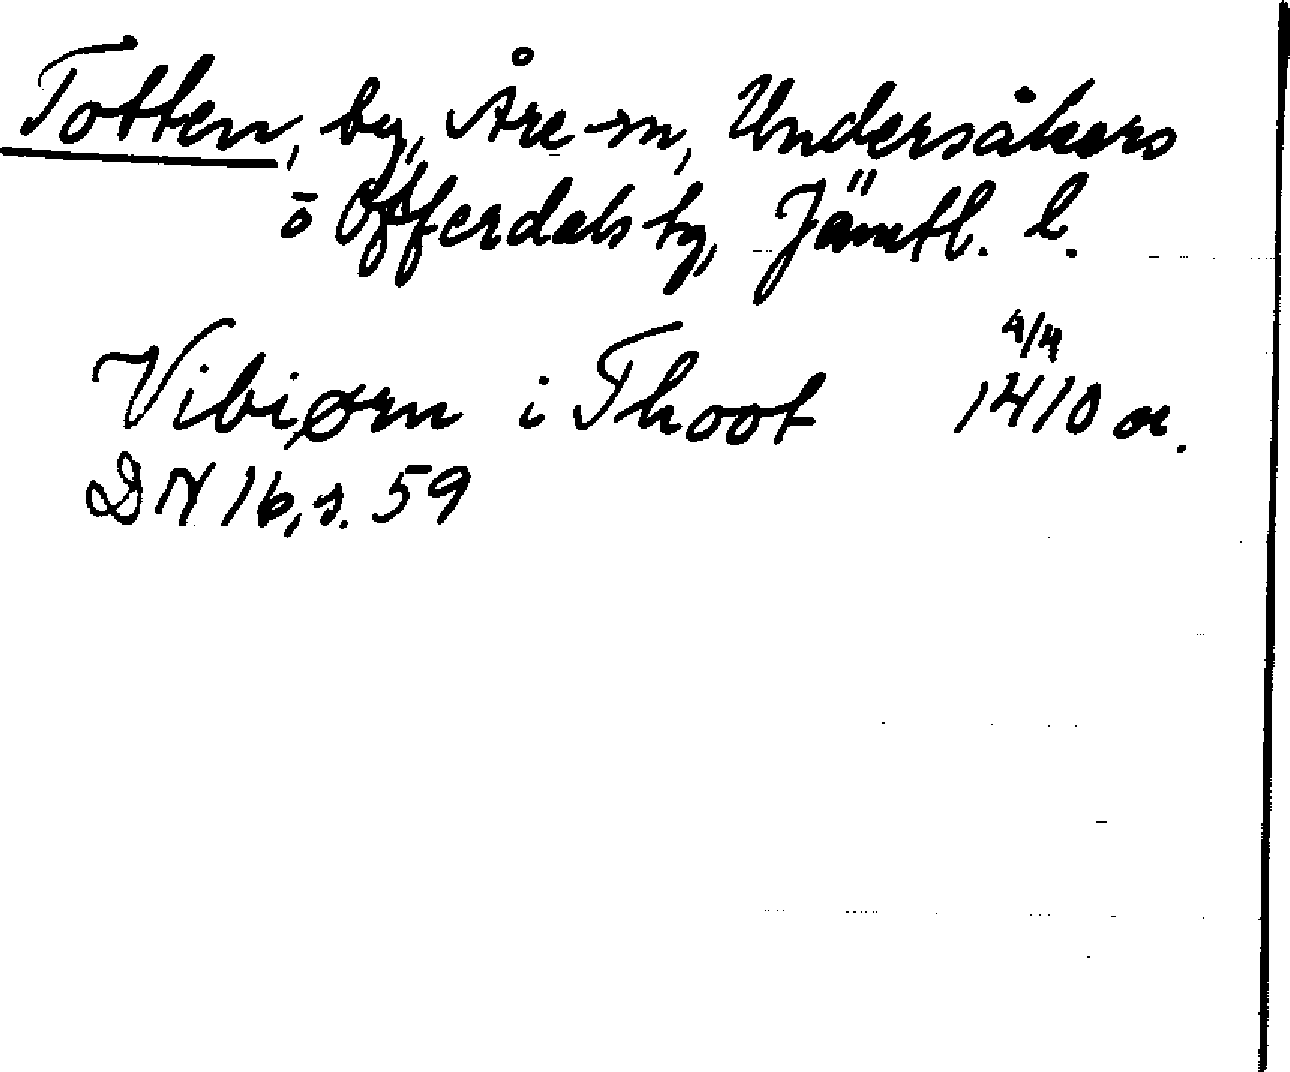 Totten, by, Åre sn, Undersåkers
o Offerdals tg, Jämtl. l.
Vibiørn i Thoot 4/4 1410 or.
DN 16, s. 59